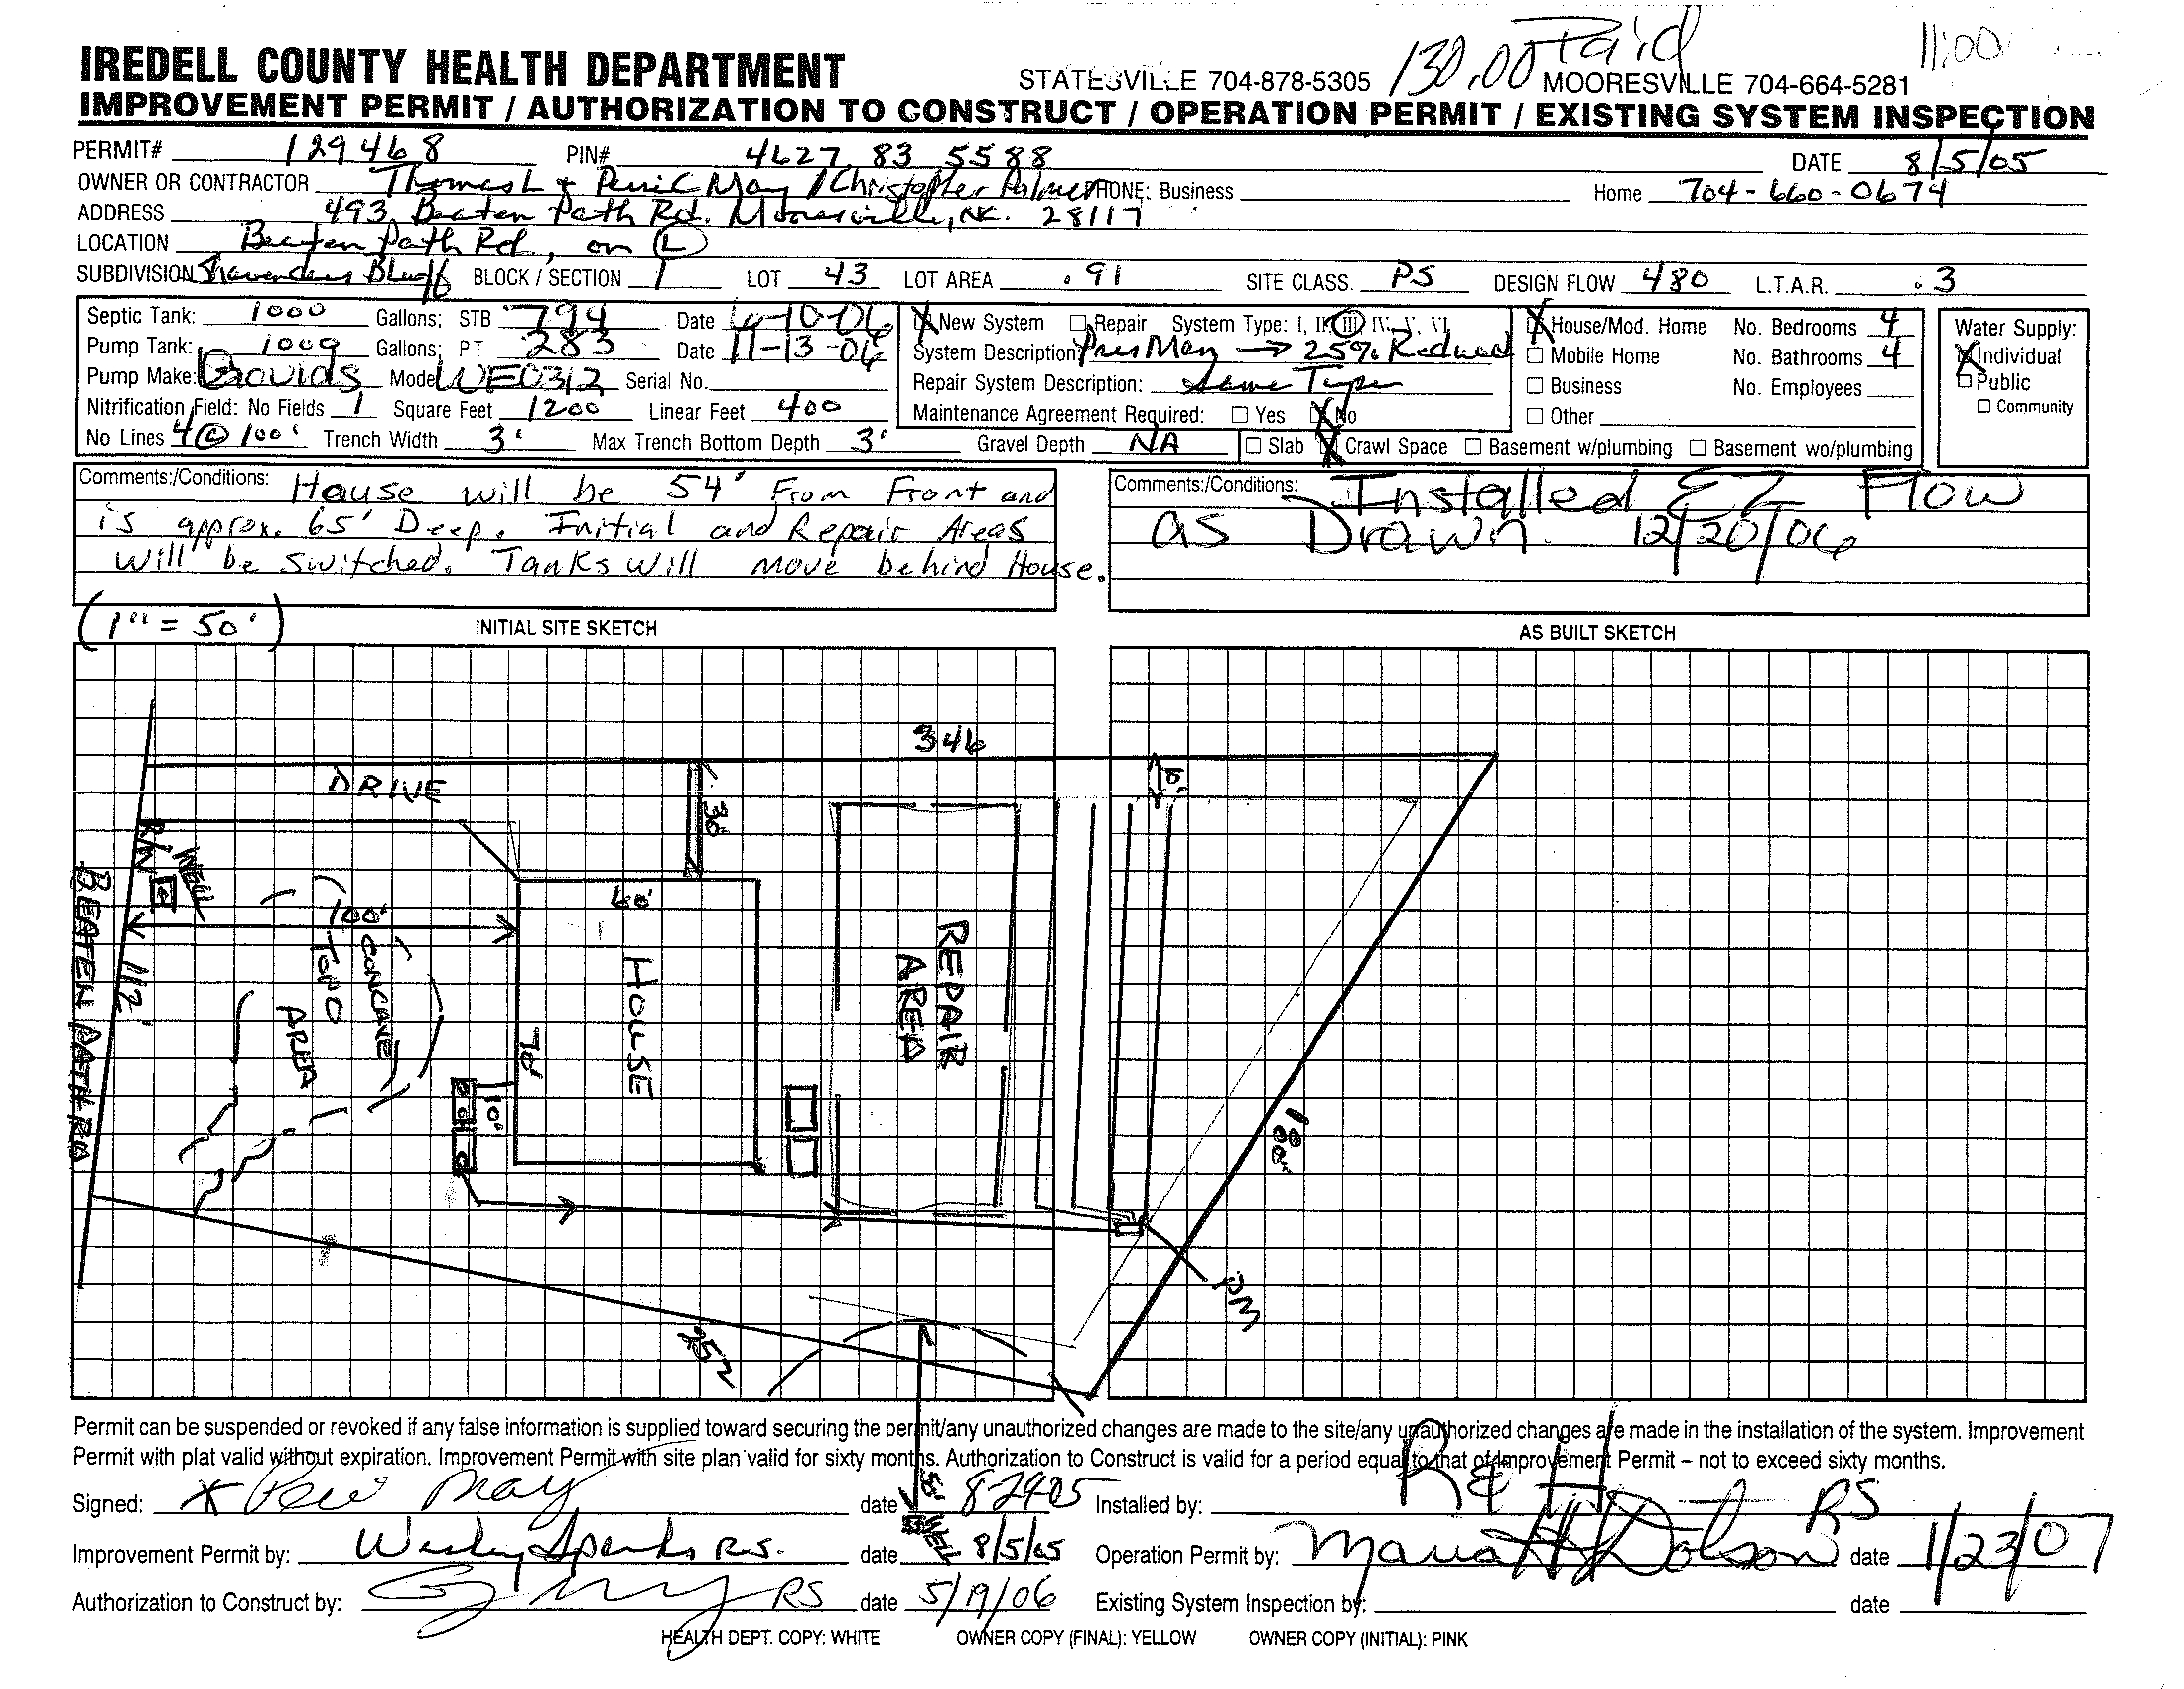 130.00 Paid 11:00
IREDELL COUNTY HEALTH DEPARTMENT STATESVILLE 704-878-5305 MOORESVILLE 704-664-5281
IMPROVEMENT PERMIT / AUTHORIZATION TO CONSTRUCT / OPERATION PERMIT / EXISTING SYSTEM INSPECTION
PERMIT# 129468 PIN# 4627 83 5588 DATE 8/5/05
OWNER OR CONTRACTOR Thomas L + Perri C May / Christopher Palmer PHONE: Business Home 704-660-0674
ADDRESS 493 Beaten Path Rd. Mooresville, NC. 28117
LOCATION Beaten Path Rd, on (L)
SUBDIVISION Bluff BLOCK / SECTION 1 LOT 43 LOT AREA .91 SITE CLASS. PS DESIGN FLOW 480 L.T.A.R. .3
Septic Tank: 1000 Gallons; STB 794 Date 6-10-06 X New System Repair System Type: I, II, III, IV, V, VI X House/Mod. Home No. Bedrooms 4 Water Supply:
Pump Tank: 1000 Gallons; PT 283 Date 11-13-06 System Description Pres Man → 25% Reduced Mobile Home No. Bathrooms 4 X Individual
Pump Make: Goulds Model WE0312 Serial No. Repair System Description: Same Type Business No. Employees Public
Nitrification Field: No Fields 1 Square Feet 1200 Linear Feet 400 Maintenance Agreement Required: Yes X No Other Community
No Lines 4 @ 100' Trench Width 3' Max Trench Bottom Depth 3' Gravel Depth NA Slab X Crawl Space Basement w/plumbing Basement wo/plumbing
Comments:/Conditions: House will be 54' From Front and
is approx. 65' Deep. Initial and Repair Areas
will be switched. Tanks will move behind House.
Comments:/Conditions: Installed EZ Flow
as Drawn. 12/20/06
(1" = 50')
INITIAL SITE SKETCH
AS BUILT SKETCH
346
DRIVE
30'
10'
R/W
WELL
BEATEN PATH RD
112'
100'
CONCAVE
TOPO
AREA
60'
HOUSE
70'
10'
REPAIR
AREA
180'
PM
252
Permit can be suspended or revoked if any false information is supplied toward securing the permit/any unauthorized changes are made to the site/any unauthorized changes are made in the installation of the system. Improvement
Permit with plat valid without expiration. Improvement Permit with site plan valid for sixty months. Authorization to Construct is valid for a period equal to that of Improvement Permit – not to exceed sixty months.
Signed: x Perri May date 8-24-05 50' WELL Installed by: R & H
Improvement Permit by: Wesley Sparks R.S. date 8/5/05 Operation Permit by: Maria H Dotson RS date 1/23/07
Authorization to Construct by: RS date 5/19/06 Existing System Inspection by: date
HEALTH DEPT. COPY: WHITE OWNER COPY (FINAL): YELLOW OWNER COPY (INITIAL): PINK